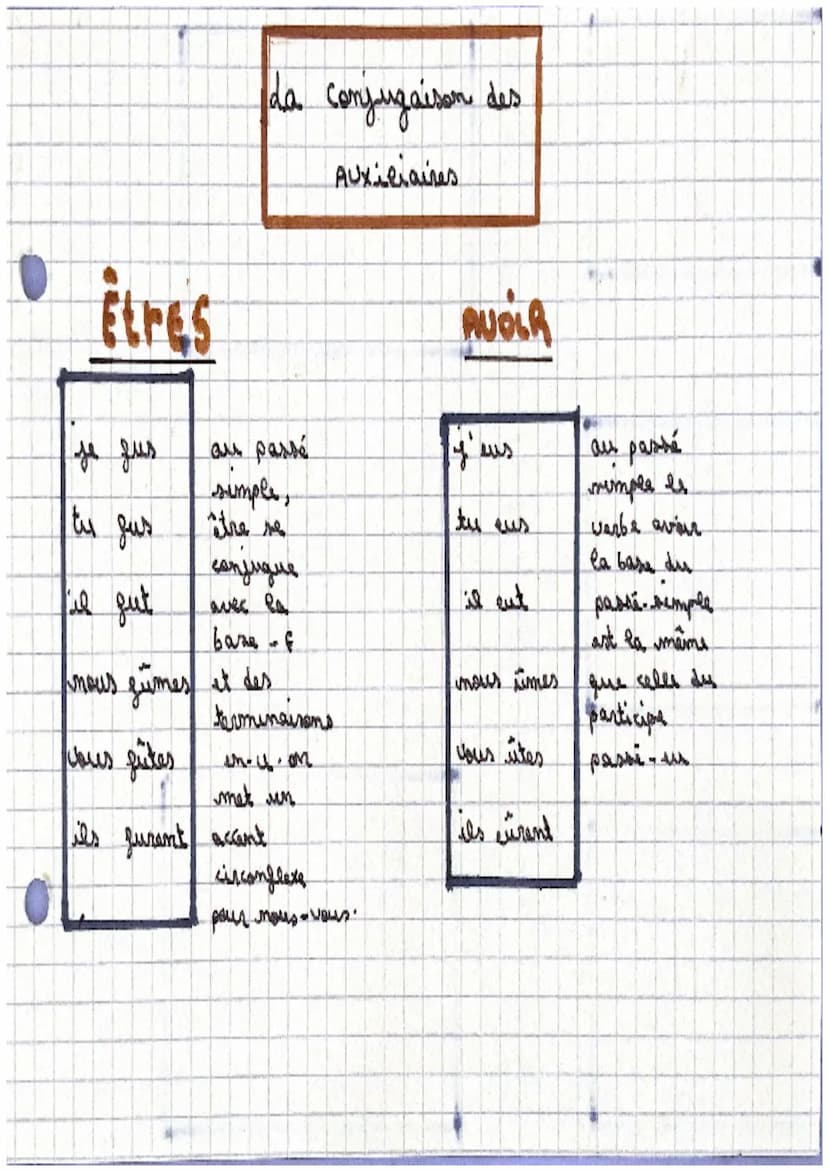 La conjugaison des
Auxiliaires
Êtres
je fus
tu fus
il fut
nous fûmes
vous fûtes
ils furent
au passé
simple,
être se
conjugue
avec la
base - f
et des
terminaisons
en-u. on
met un
accent
circonflexe
pour nous-vous.
AVOIR
j'eus
tu eus
il eut
nous ûmes
vous ûtes
ils eûrent
au passé
simple le
verbe avoir
la base du
passé-simple
est la même
que celles du
participe
passé-eu